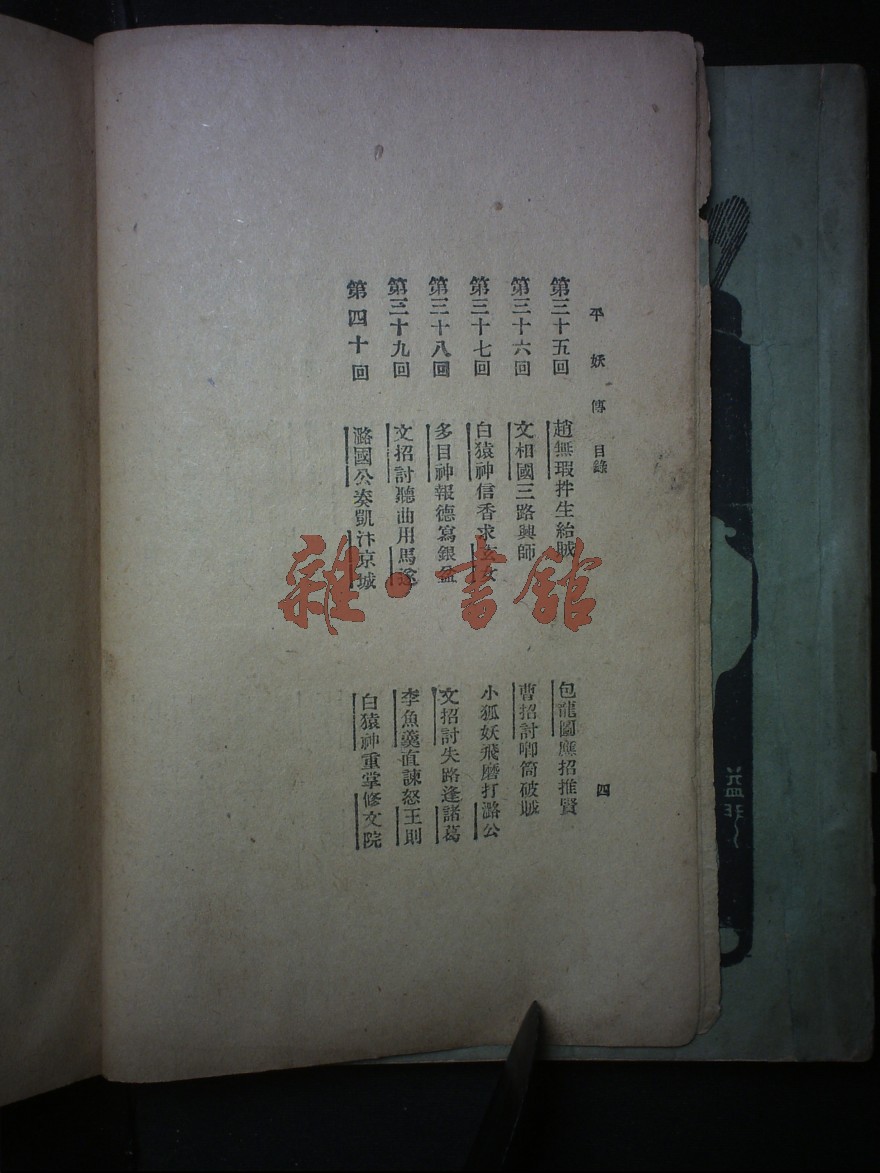 平妖傳 目錄
四
第三十五回 趙無瑕拌生紿賊 包龍圖應招推賢
第三十六回 文相國三路興師 曹招討唧筒破賊
第三十七回 白猿神信香求玄女 小狐妖飛磨打潞公
第三十八回 多目神報德寫銀盆 文招討失路逢諸葛
第三十九回 文招討聽曲用馬遂 李魚羹直諫怒王則
第四十回 潞國公奏凱汴京城 白猿神重掌修文院
雜·書館